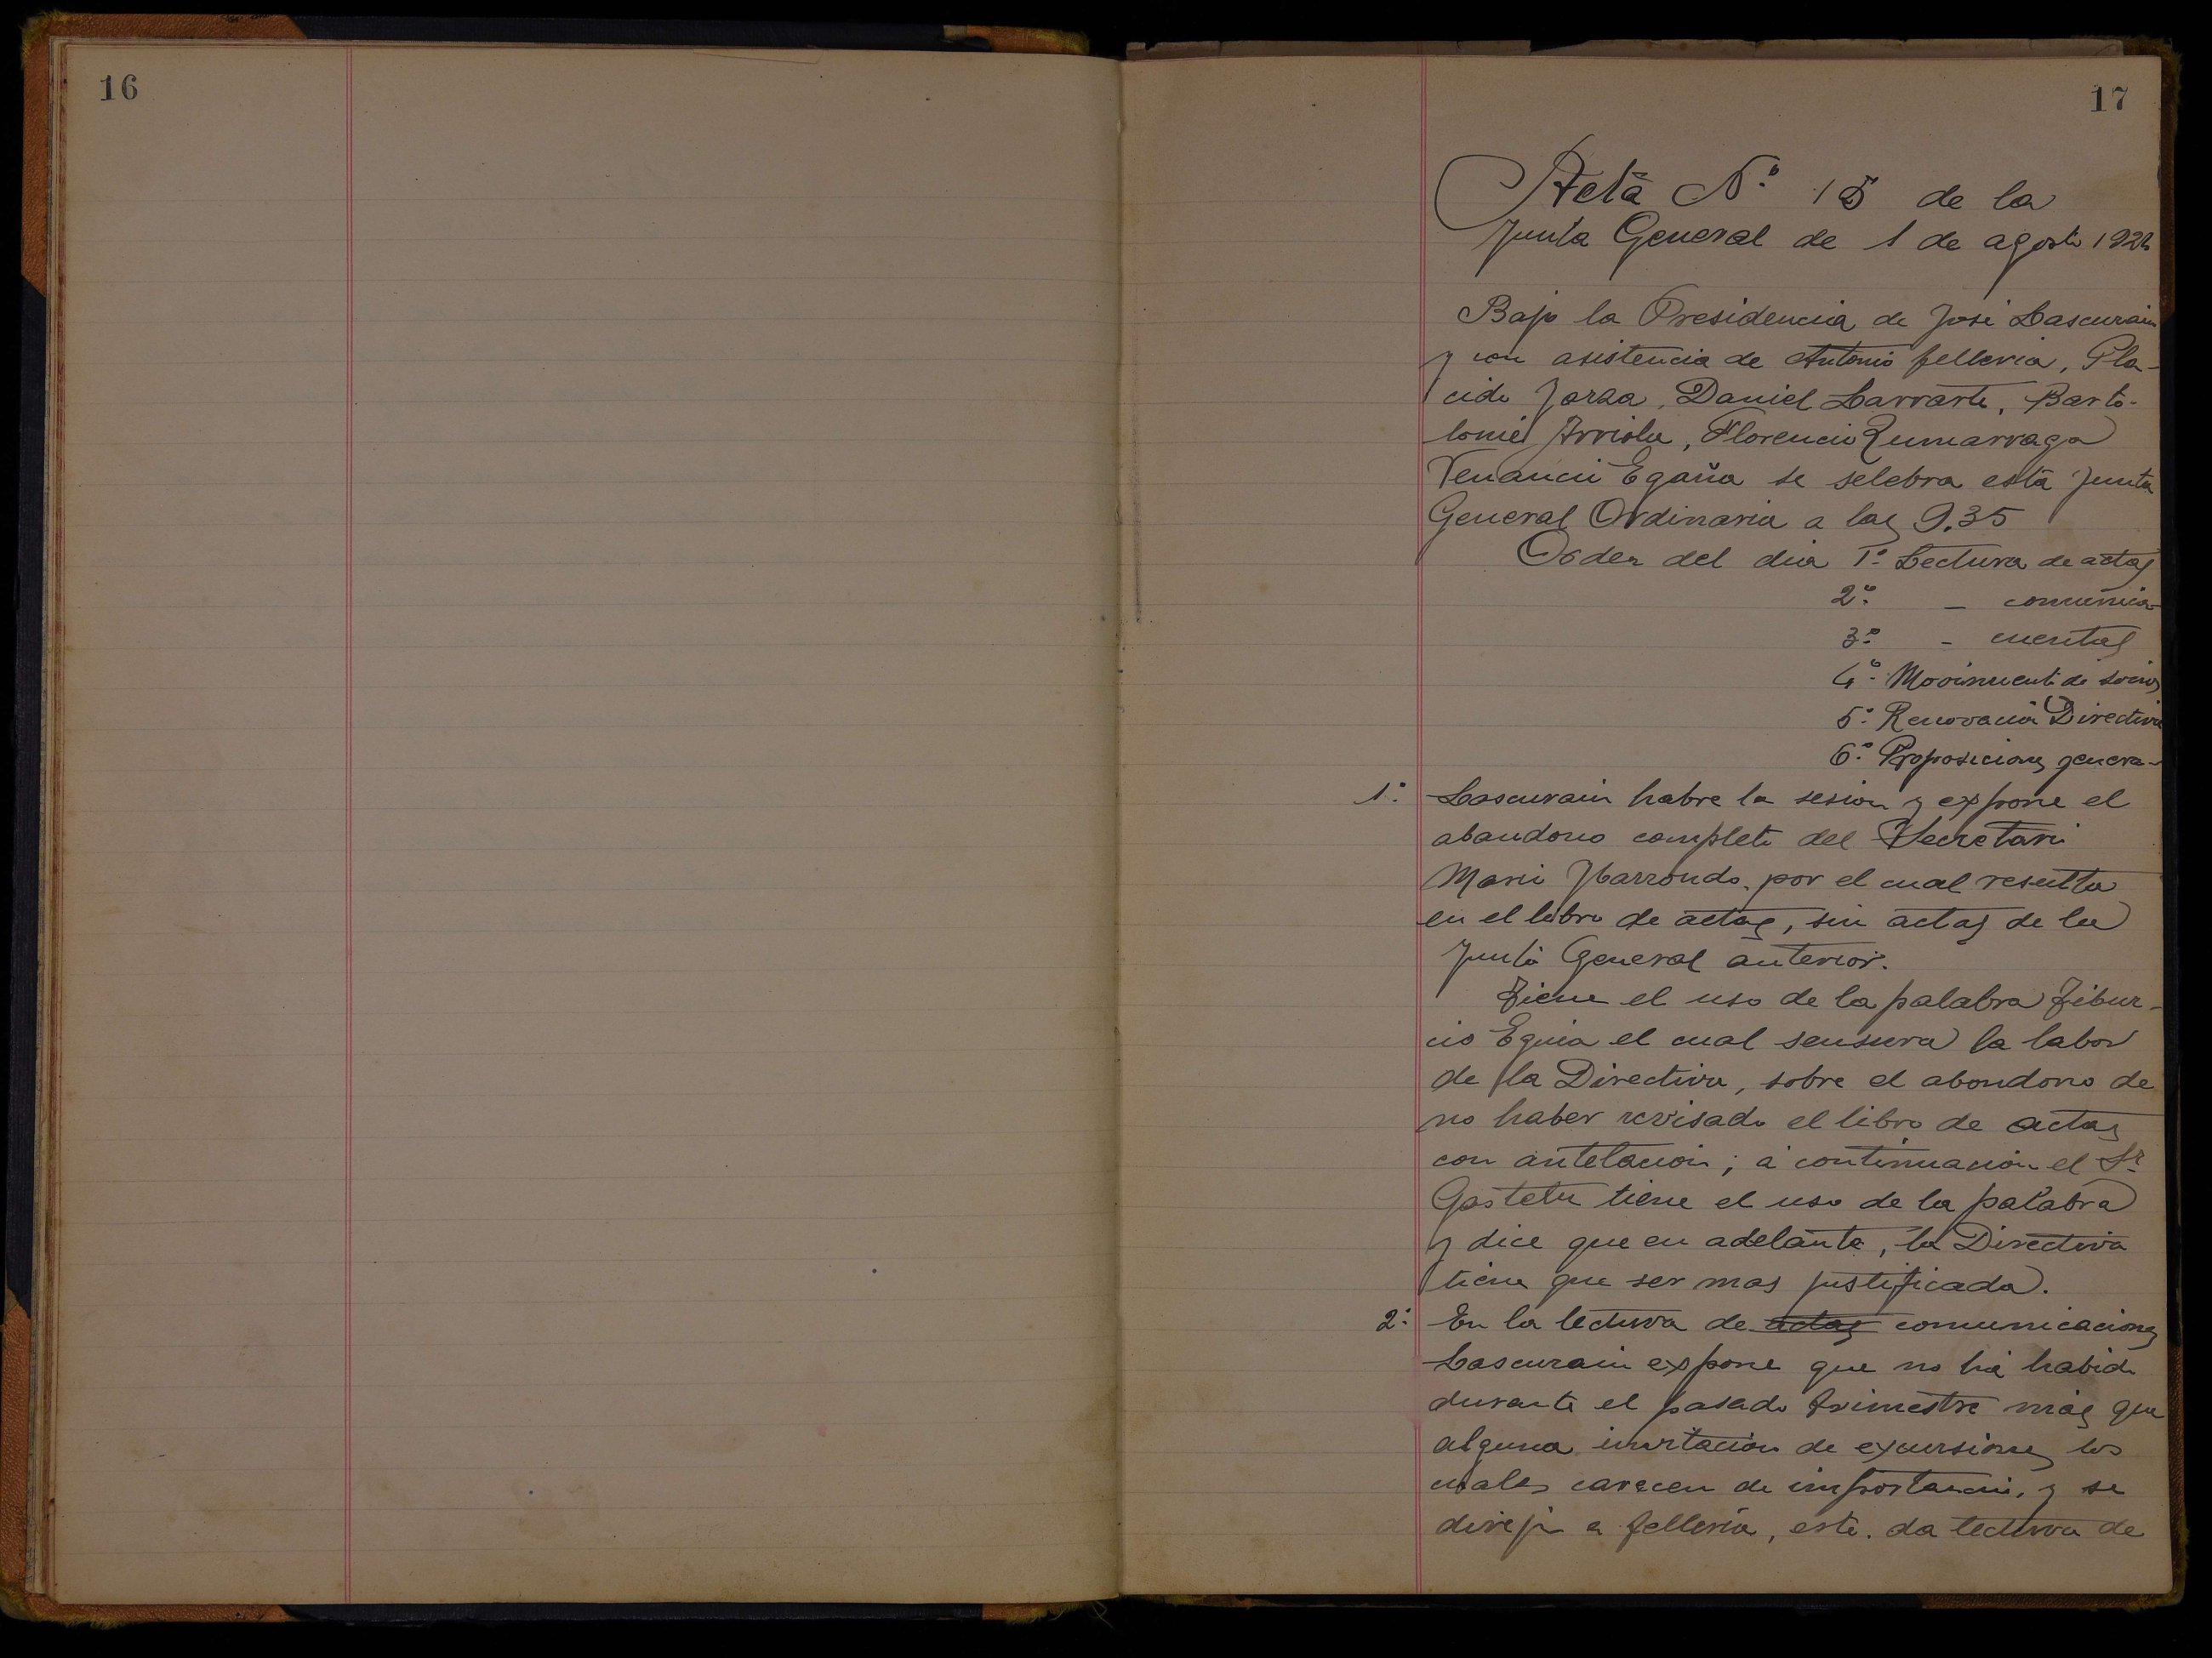 16
17
Acta Nº 15 de la
Junta General de 1 de agosto 192
Bajo la Presidencia de José Lascurain
y con asistencia de Antonio Telleria, Pla-
cido Jorza, Daniel Larrarte, Barto-
lomé Arriola, Florencio Zumarraga
Venancio Egaña se selebra esta Junta
General Ordinaria a las 9.35
Orden del dia 1º Lectura de actas
2º - comunica-
3º - cuentas
4º Movimiento de socios
5º Renovación Directiva
6º Proposiciones genera-
1º Lascurain habre la sesion y expone el
abandono completo del Secretario
Mario Ibarrondo, por el cual resulta
en el libro de actas, sin actas de la
Junta General anterior.
Tiene el uso de la palabra Tibur-
cio Eguia el cual sensura la labor
de la Directiva, sobre el abondono de
no haber revisado el libro de actas
con antelación; á continuación el Sr.
Gastetu tiene el uso de la palabra
y dice que en adelante, la Directiva
tiene que ser mas justificada.
2º En la lectura de actas comunicaciones
Lascurain expone que no há habido
durante el pasado trimestre más que
alguna invitación de excursiones los
cuales carecen de importancia, y se
dirije a Telleria, este. da lectura de